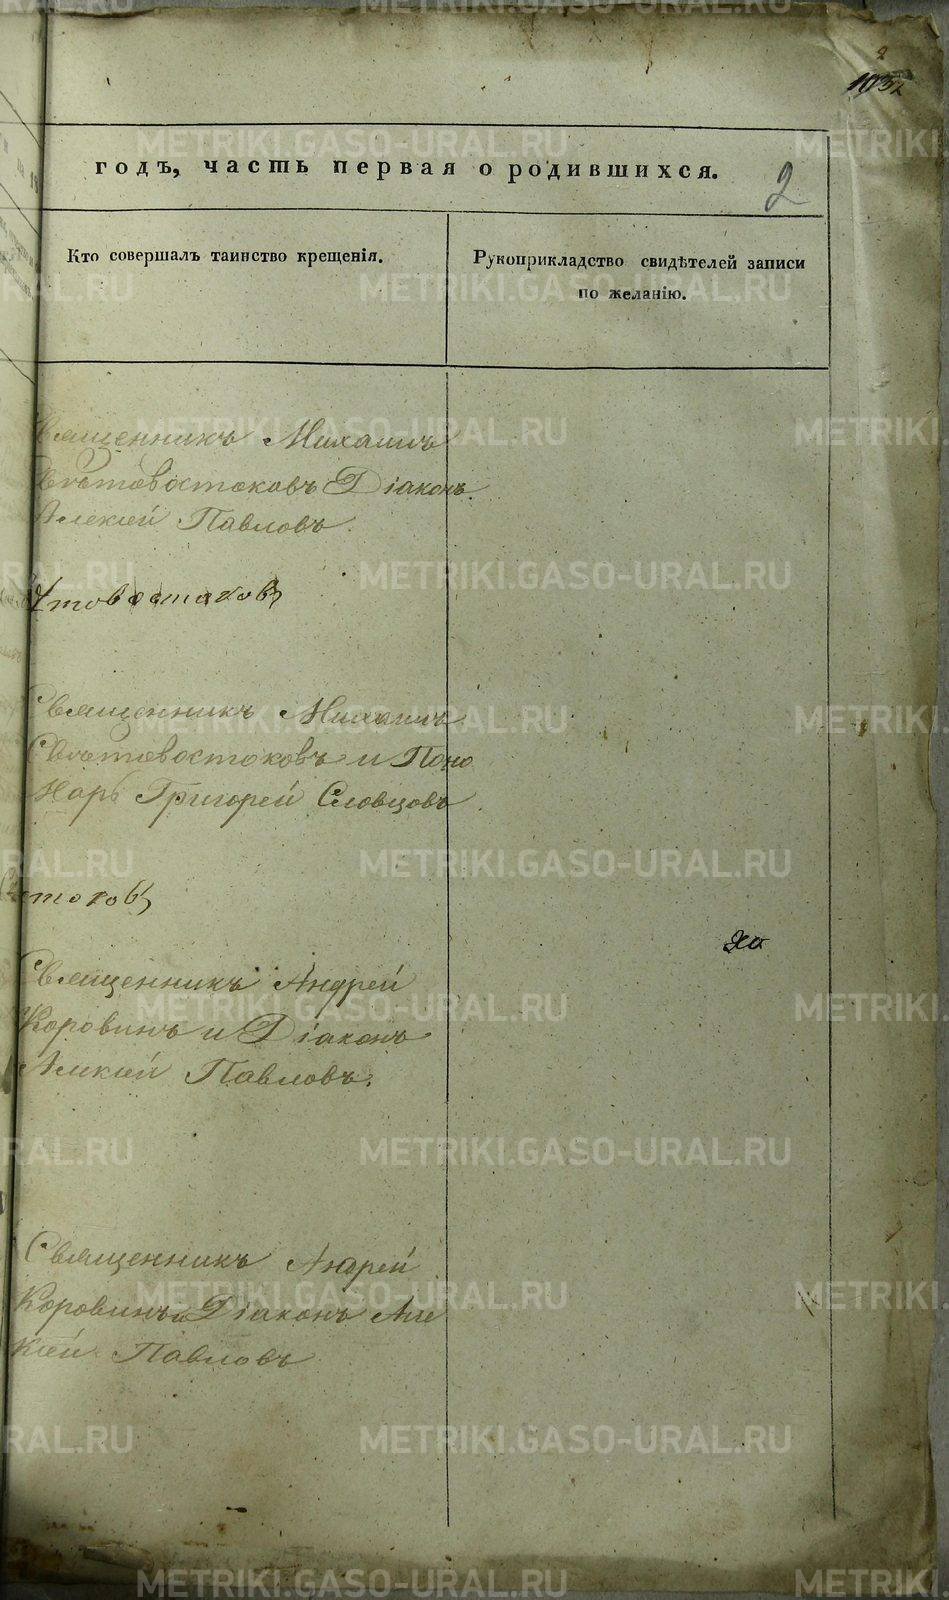 годъ, часть первая о родившихся.
2
Кто совершалъ таинство крещенія.
Рукоприкладство свидѣтелей записи
по желанію.
Священникъ Михаилъ
Свѣтовостоковъ Діаконъ
Алексѣй Павловъ.
Священникъ Михаилъ
Свѣтовостоковъ и Поно
марь Григорей Словцовъ
Священникъ Андрей
Коровинъ и Діаконъ
Алексѣй Павловъ.
Священникъ Андрей
Коровинъ и Діаконъ Але
ксѣй Павловъ
METRIKI.GASO-URAL.RU